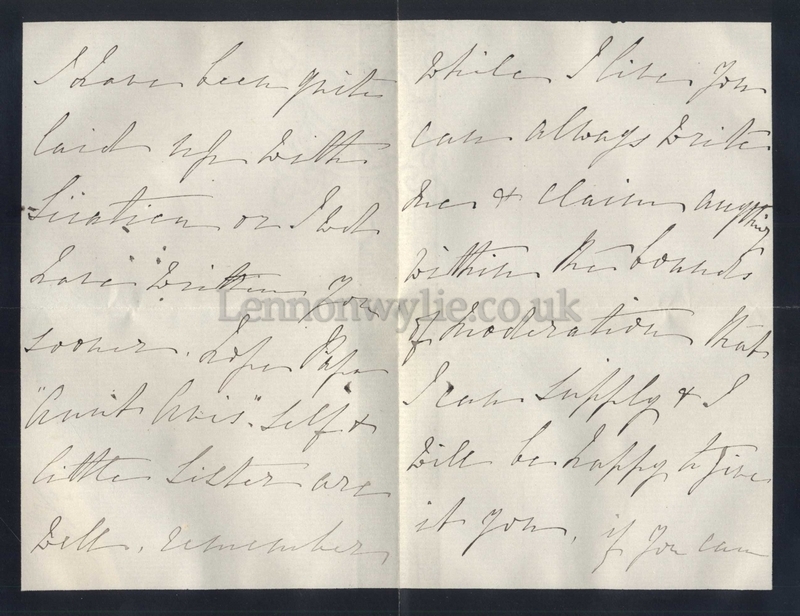 I have been quite
laid up with
Siiatica or I wd
have written you
sooner. hope Papa
"Aunt Avis". self &
little Sister are
Well. remember
While I live you
can always write
me & claim anything
within the bounds
of moderation that
I can supply & I
will be happy to give
it you, if you can
Lennonwylie.co.uk